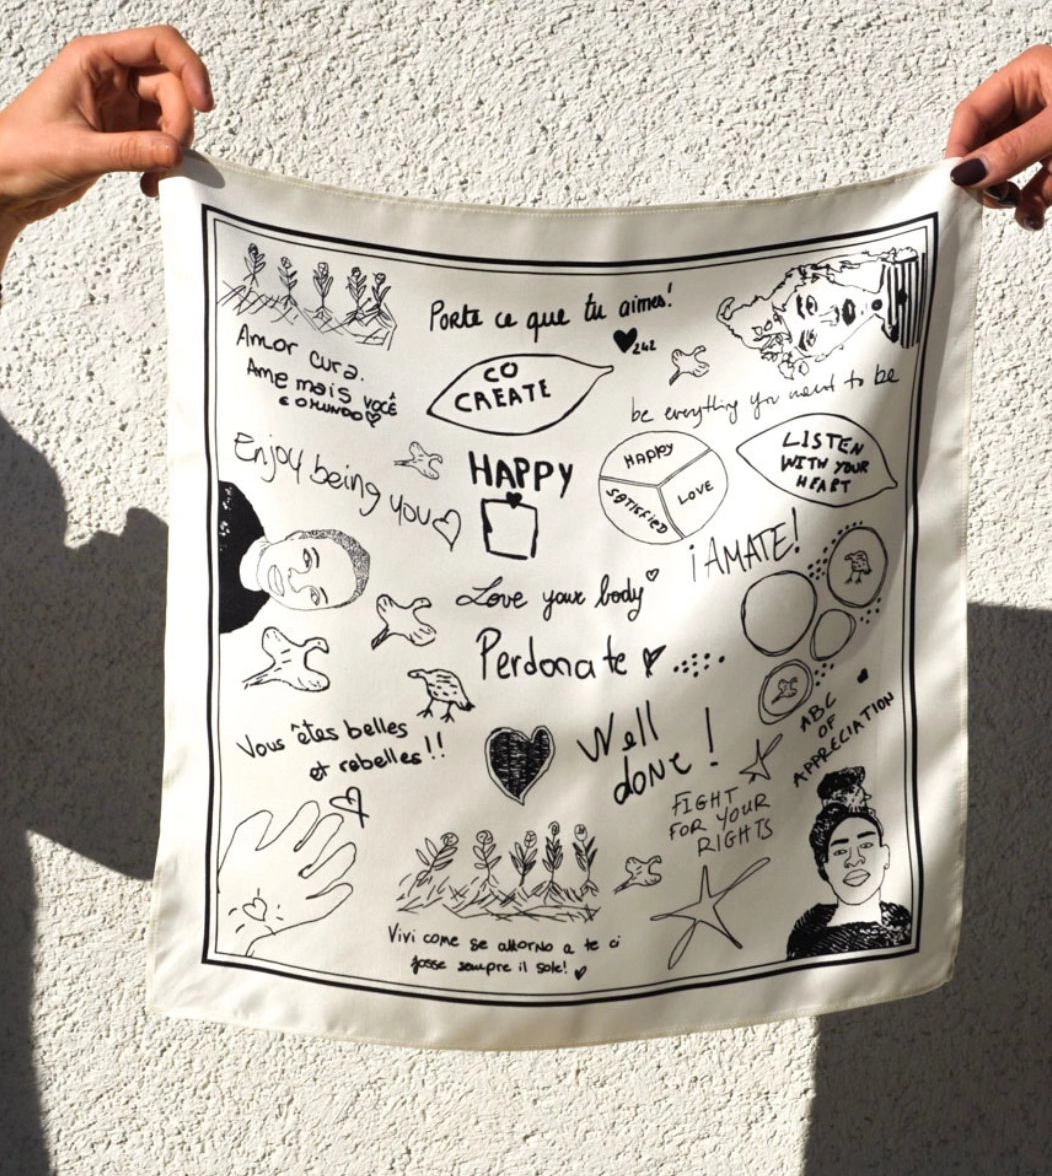 Porte ce que tu aimes!
242
Amor cura.
Ame mais você
e o mundo
CO
CREATE
be everything you want to be
Enjoy being you
HAPPY
HAPPY
LOVE
SATISFIED
LISTEN
WITH YOUR
HEART
¡AMATE!
Love your body
Perdonate
Vous êtes belles
et rebelles!!
Well
done!
ABC
OF
APPRECIATION
FIGHT
FOR YOUR
RIGHTS
Vivi come se attorno a te ci
fosse sempre il sole!